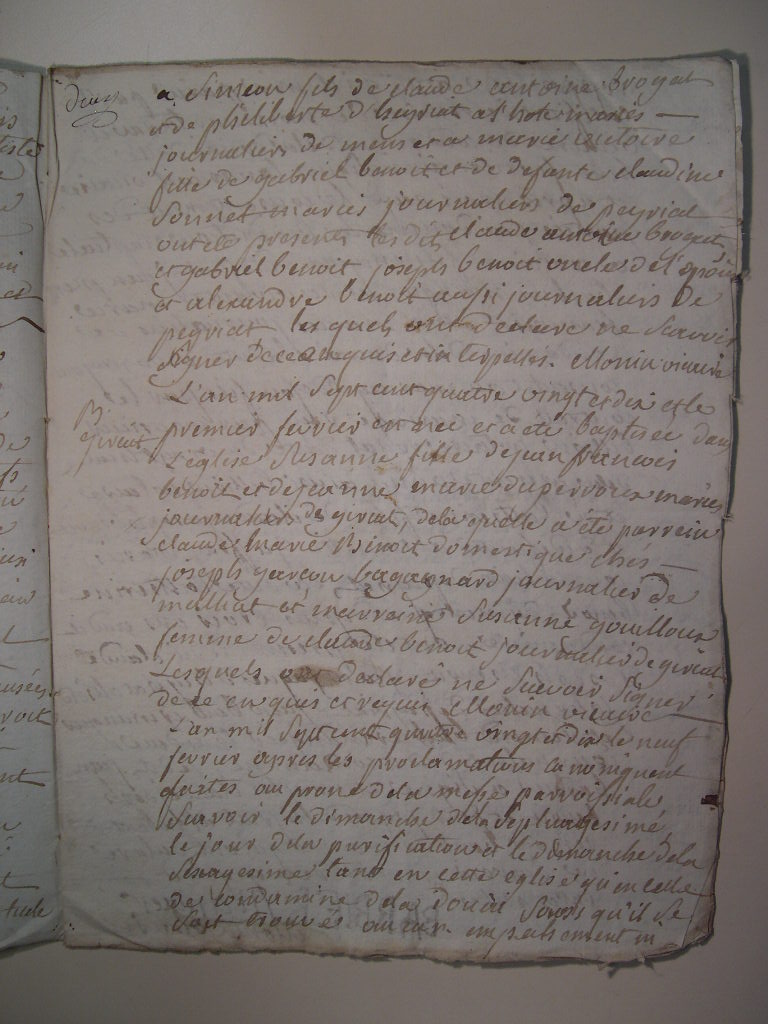 deux
a Simeon fils de claude antoine brogat
et de philiberte d'heyriat a l'hote mariés
journaliers de mens et a marie victoire
fille de gabriel benoit et de defunte claudine
Sonnet mariés journaliers de peyriat
ont été presents les dits claude antoine brogat
et gabriel benoit joseph benoit oncle de l'epouse
et alexandre benoit aussi journaliers de
peyriat lesquels ont declaré ne scavoir
signer de ce enquis et interpellés. Monin vicaire
L'an mil sept cent quatre vingt et dix et le
B.
giriat
premier fevrier est née et a eté baptisée dans
L'église Susanne fille de jean francois
benoit et de jeanne marie duperroux mariés
journaliers de giriat, de la quelle a été parrein
claude marie Binoit domestique chés
joseph garcon journalier de
et marraine Susanne gouilloux
femme de claude benoit journalier de giriat
Lesquels ont declaré ne scavoir signer
de ce enquis et requis Monin vicaire
L'an mil sept cent quatre vingt et dix le neuf
fevrier apres les proclamations canoniquent
faites au prone de la messe parroissiale
Scavoir le dimanche de la Septuagesime
le jour de la purification et le dimanche de la
Sexagesime tant en cette eglise qu'en celle
de condamine de la doüai sans qu'il se
soit trouvés aucun empechement ni